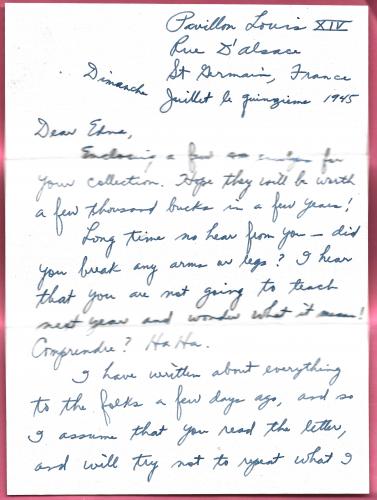 Pavillon Louis XIV
Rue D'alsace
St Germain, France
Dimanche Juillet le quinzieme 1945
Dear Edna,
Enclosing a few for
your collection. Hope they will be worth
a few thousand bucks in a few years!
Long time no hear from you — did
you break any arms or legs? I hear
that you are not going to teach
next year and wonder what it means!
Comprendre? Ha Ha.
I have written about everything
to the folks a few days ago, and so
I assume that you read the letter,
and will try not to repeat what I